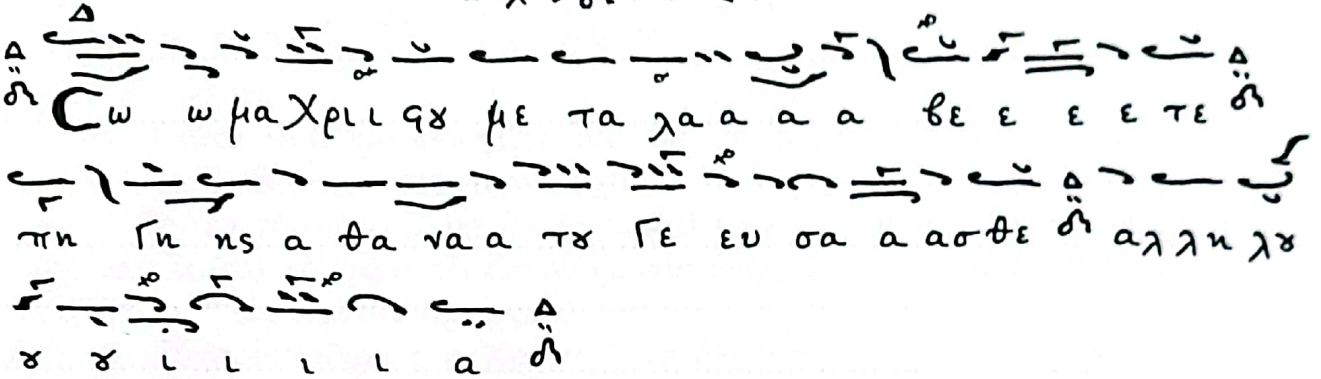 Σω ω μα Χρι ι ϛȣ με τα λα α α α βε ε ε ε τε
πη Γη ης α θα να α τȣ Γε ευ σα α ασθε αλλη λȣ
ȣ ȣ ι ι ι ι α